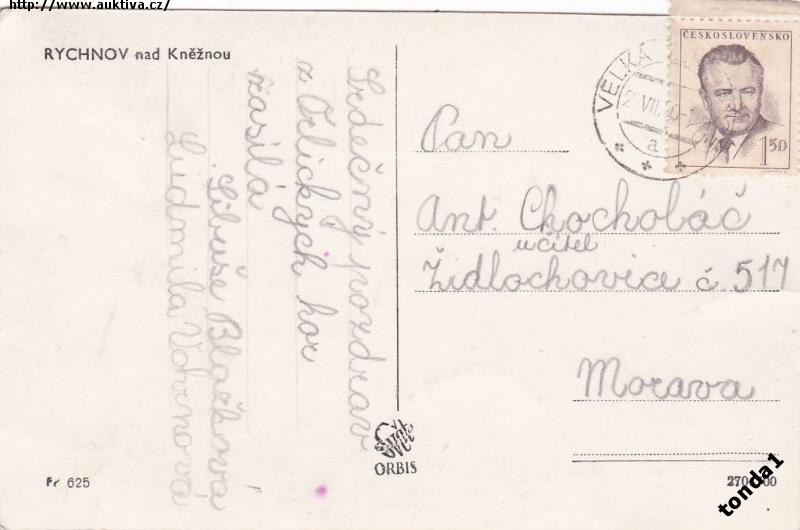 http://www.auktiva.cz/
RYCHNOV nad Kněžnou
Srdečný pozdrav
z Orlických hor
zasílá
Libuše Blažková
Ludmila Vohrnová
ORBIS
Fr 625
ČESKOSLOVENSKO
1.50
VELKÁ
VII.
a
Pan
Ant. Chocholáč
učitel
Židlochovice č. 517
Morava
tonda1